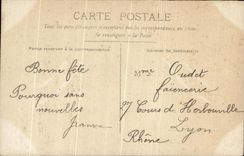 CARTE POSTALE
Tous les pays étrangers n'acceptent pas la correspondance au recto
Se renseigner à la Poste
Partie réservée à la correspondance
Adresse du destinataire
Bonne fête
Pourquoi sans
nouvelles
Jeanne
Mme Oudet
faïencerie
27 Cours d'Herbouville
Lyon
Rhône